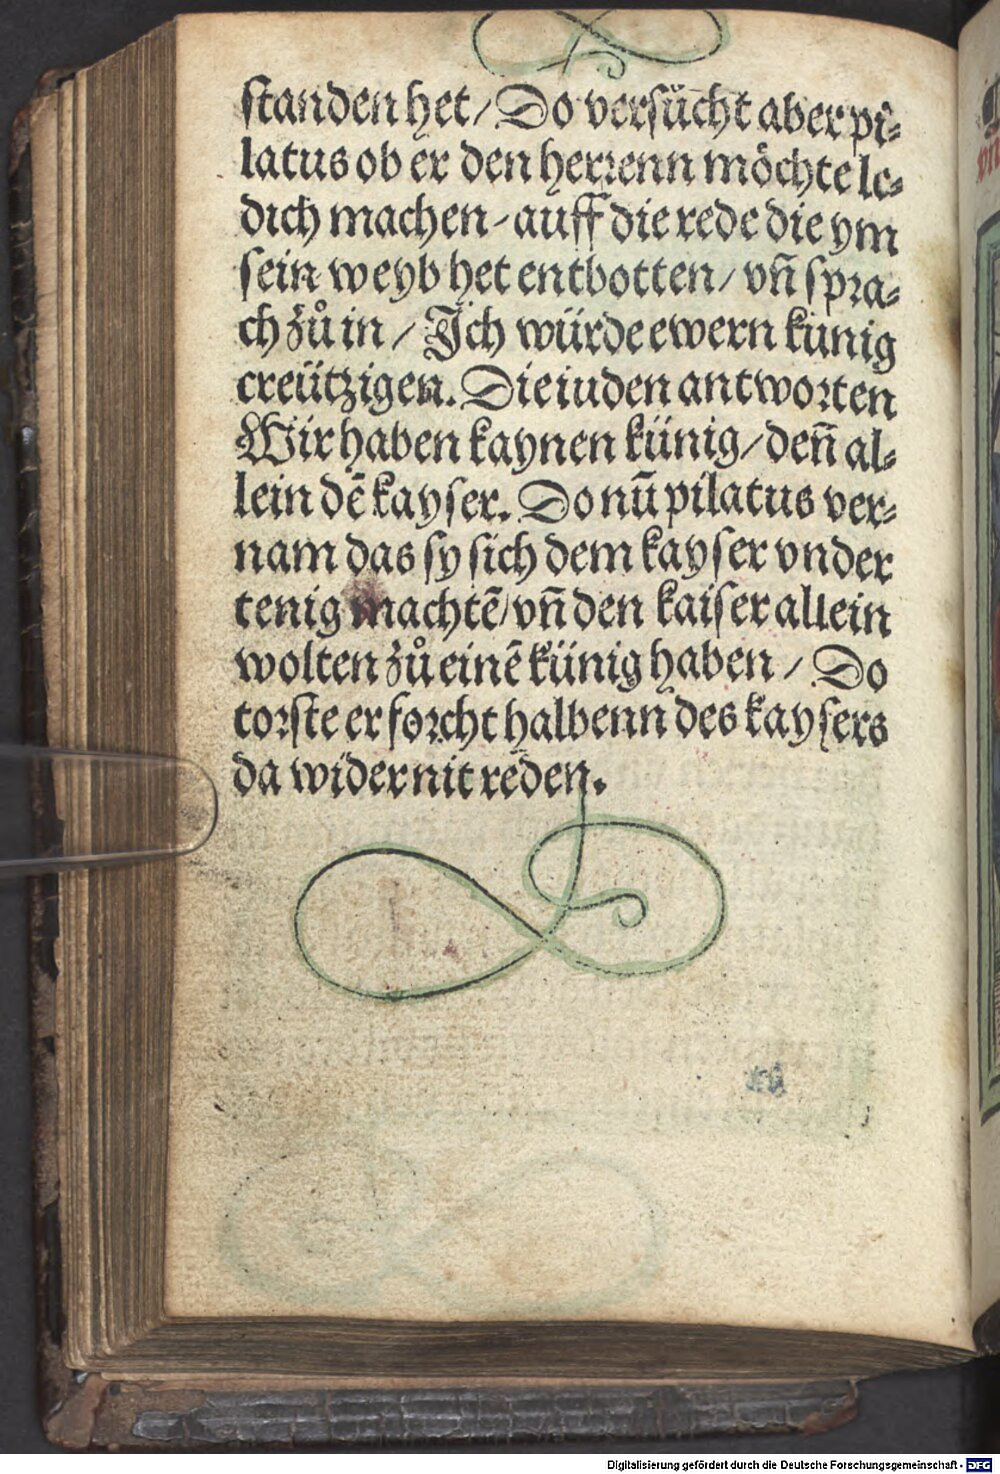 standen het / Do versücht aber pi⸗
latus ob er den herrenn möchte le⸗
dich machen ⸗ auff die rede die ym
sein weyb het entbotten / vñ spra⸗
ch zů in / Ich würde ewern kunig
creützigen. Die iuden antworten
Wir haben kaynen künig / deñ al⸗
lein dē kayser. Do nū pilatus ver⸗
nam das sy sich dem kayser vnder
tenig machtē / vñ den kaiser allein
wolten zů einē künig haben / Do
torste er forcht halbenn des kaysers
da wider nit reden.
Digitalisierung gefördert durch die Deutsche Forschungsgemeinschaft - DFG